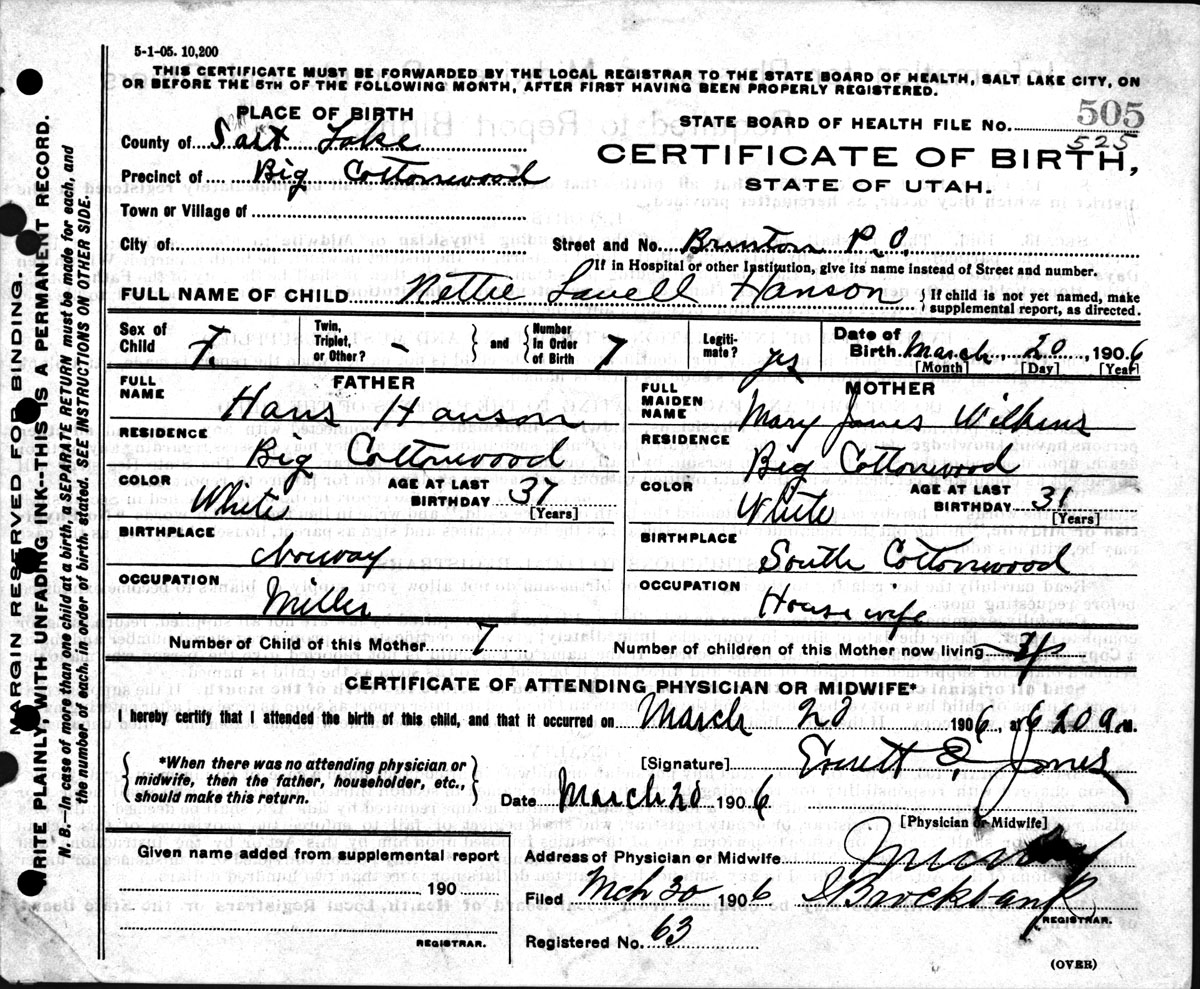 5-1-05. 10,200
THIS CERTIFICATE MUST BE FORWARDED BY THE LOCAL REGISTRAR TO THE STATE BOARD OF HEALTH, SALT LAKE CITY, ON
OR BEFORE THE 5TH OF THE FOLLOWING MONTH, AFTER FIRST HAVING BEEN PROPERLY REGISTERED.
PLACE OF BIRTH
STATE BOARD OF HEALTH FILE NO. 505
525
County of Salt Lake
CERTIFICATE OF BIRTH,
Precinct of Big Cottonwood
STATE OF UTAH.
Town or Village of
City of
Street and No. Brinton P.O.
If in Hospital or other Institution, give its name instead of Street and number.
FULL NAME OF CHILD Nettie Lavell Hanson { If child is not yet named, make supplemental report, as directed.
Sex of Child F
Twin, Triplet, or Other?
and
Number In Order of Birth 7
Legitimate? yes
Date of Birth March 20, 1906
[Month] [Day] [Year]
FATHER
FULL NAME Hans Hanson
RESIDENCE Big Cottonwood
COLOR White
AGE AT LAST BIRTHDAY 37
[Years]
BIRTHPLACE Norway
OCCUPATION Miller
MOTHER
FULL MAIDEN NAME Mary Jones Wilkins
RESIDENCE Big Cottonwood
COLOR White
AGE AT LAST BIRTHDAY 31
[Years]
BIRTHPLACE South Cottonwood
OCCUPATION House wife
Number of Child of this Mother 7
Number of children of this Mother now living
CERTIFICATE OF ATTENDING PHYSICIAN OR MIDWIFE*
I hereby certify that I attended the birth of this child, and that it occurred on March 20 1906, at 6 20 a m.
*When there was no attending physician or
midwife, then the father, householder, etc.,
should make this return.
[Signature] Everett E. Jones
Date March 20 1906
[Physician or Midwife]
Given name added from supplemental report
190
REGISTRAR.
Address of Physician or Midwife Murray
Filed Mch 30 1906 Brockbank
REGISTRAR.
Registered No. 63
(OVER)
MARGIN RESERVED FOR BINDING.
WRITE PLAINLY, WITH UNFADING INK--THIS IS A PERMANENT RECORD.
N. B.—In case of more than one child at a birth, a SEPARATE RETURN must be made for each, and
the number of each, in order of birth, stated. SEE INSTRUCTIONS ON OTHER SIDE.